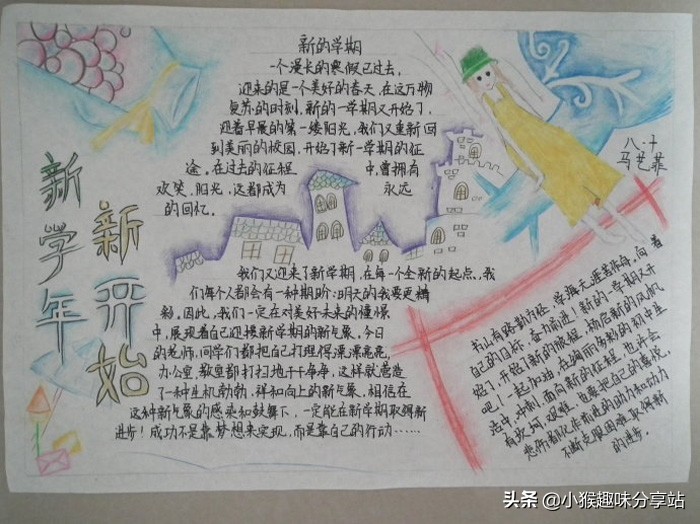 新学年
新开始
新的学期
一个漫长的寒假已过去,
迎来的是一个美好的春天,在这万物
复苏的时刻,新的一学期又开始了,
迎着早晨的第一缕阳光,我们又重新回
到美丽的校园,开始了新一学期的征
途,在过去的征程中,曾拥有
欢笑、阳光,这都成为永远
的回忆。
八、十
马艺菲
我们又迎来了新学期,在每一个全新的起点,我
们每个人都会有一种期盼:明天的我要更精
彩,因此,我们一定在对美好未来的憧憬
中,展现着自己迎接新学期的新气象,今日
的老师,同学们都把自己打理得漂漂亮亮,
办公室,教室都打扫地干干净净,这样就营造
了一种生机勃勃,祥和向上的新气象,相信在
这种新气象的感染和鼓舞下,一定能在新学期取得新
进步!成功不是靠梦想来实现,而是靠自己的行动……
书山有路勤为径,学海无涯苦作舟,向着
自己的目标,奋力前进!新的一学期又开
始了,开始了新的旅程,扬启新的风帆
吧!一起加油,在绚丽多彩的初中生
活中,冲刺,面向新的征程,也许会
有坎坷,艰难,也要把自己的喜悦,
悲伤都化作前进的动力和动力
不断克服困难取得新
的进步。
头条 @小猴趣味分享站